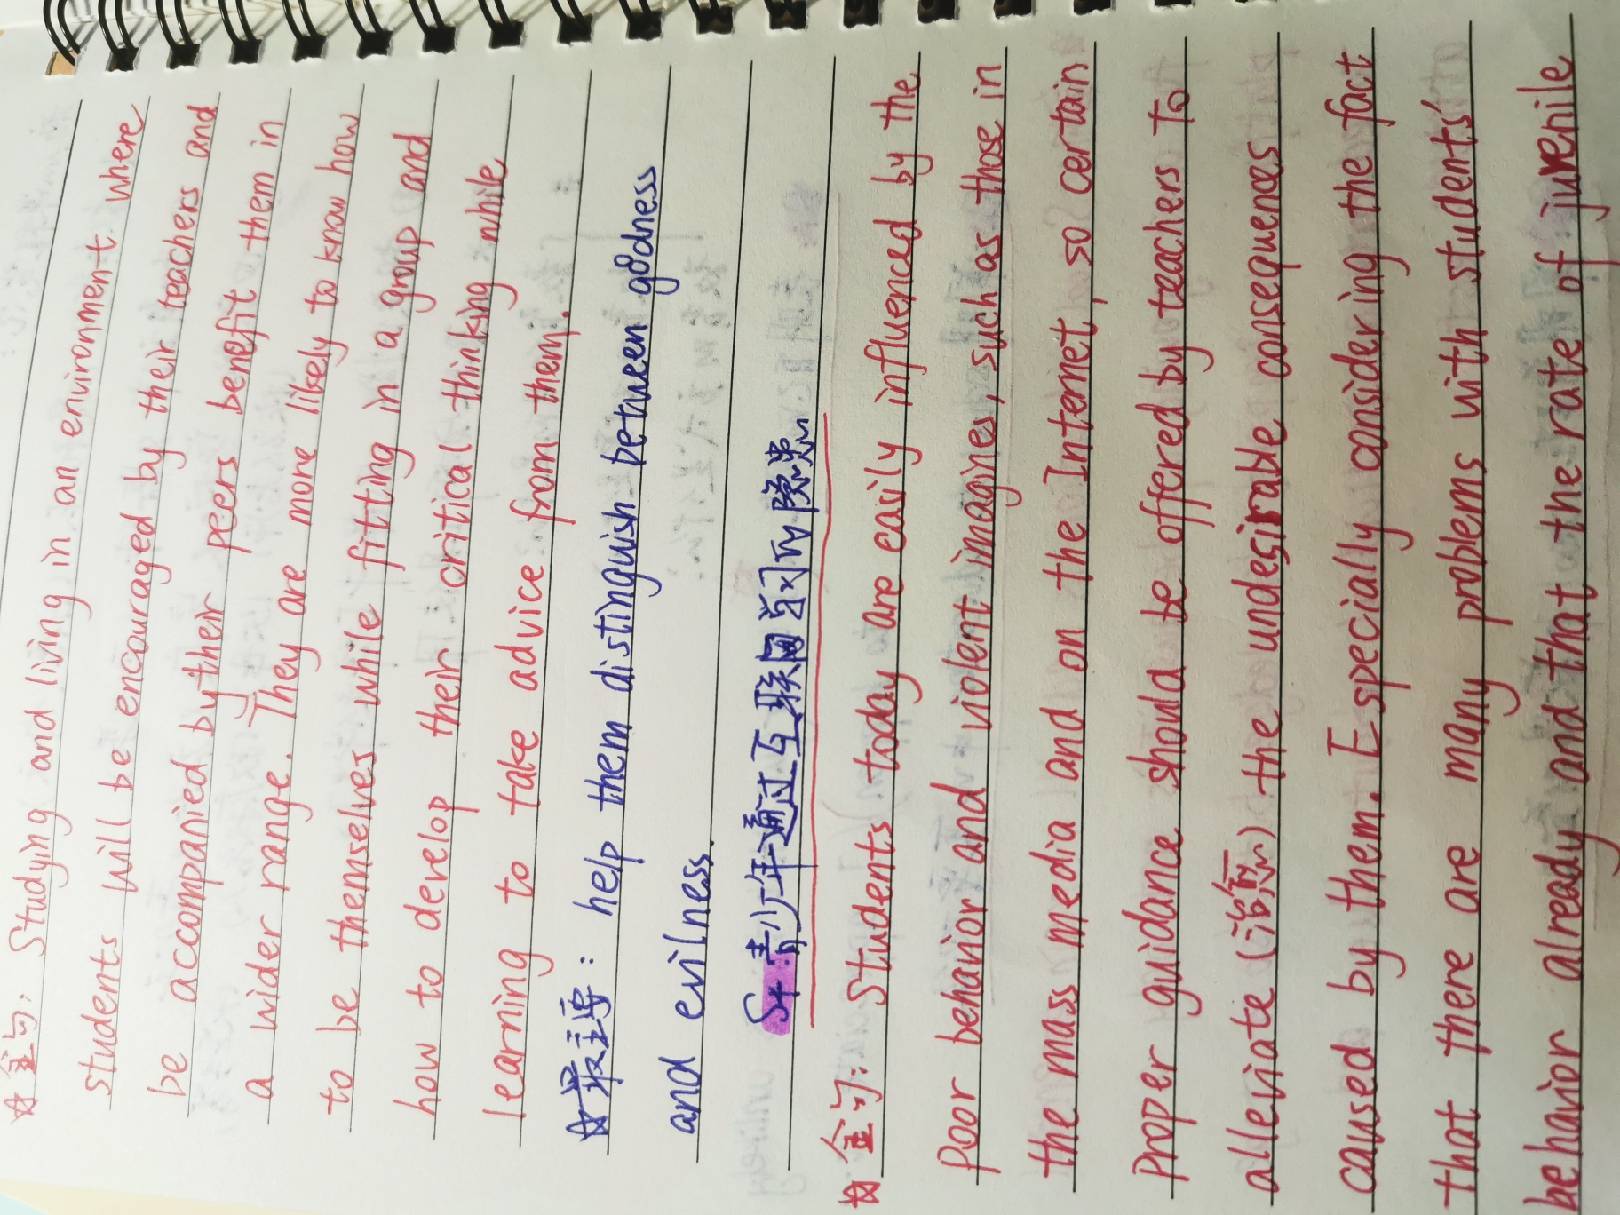 ☆金句: Studying and living in an environment where
students will be encouraged by their teachers and
be accompanied by their peers benefit them in
a wider range. They are more likely to know how
to be themselves while fitting in a group and
how to develop their critical thinking while
learning to take advice from them.
☆最主要: help them distinguish between goodness
and evilness.
S+青少年通过互联网学习的隐患
☆金句: Students today are easily influenced by the
poor behavior and violent imagines, such as those in
the mass media and on the Internet, so certain
proper guidance should be offered by teachers to
alleviate (缓解) the undesirable consequences
caused by them. Especially considering the fact
that there are many problems with students'
behavior already and that the rate of juvenile